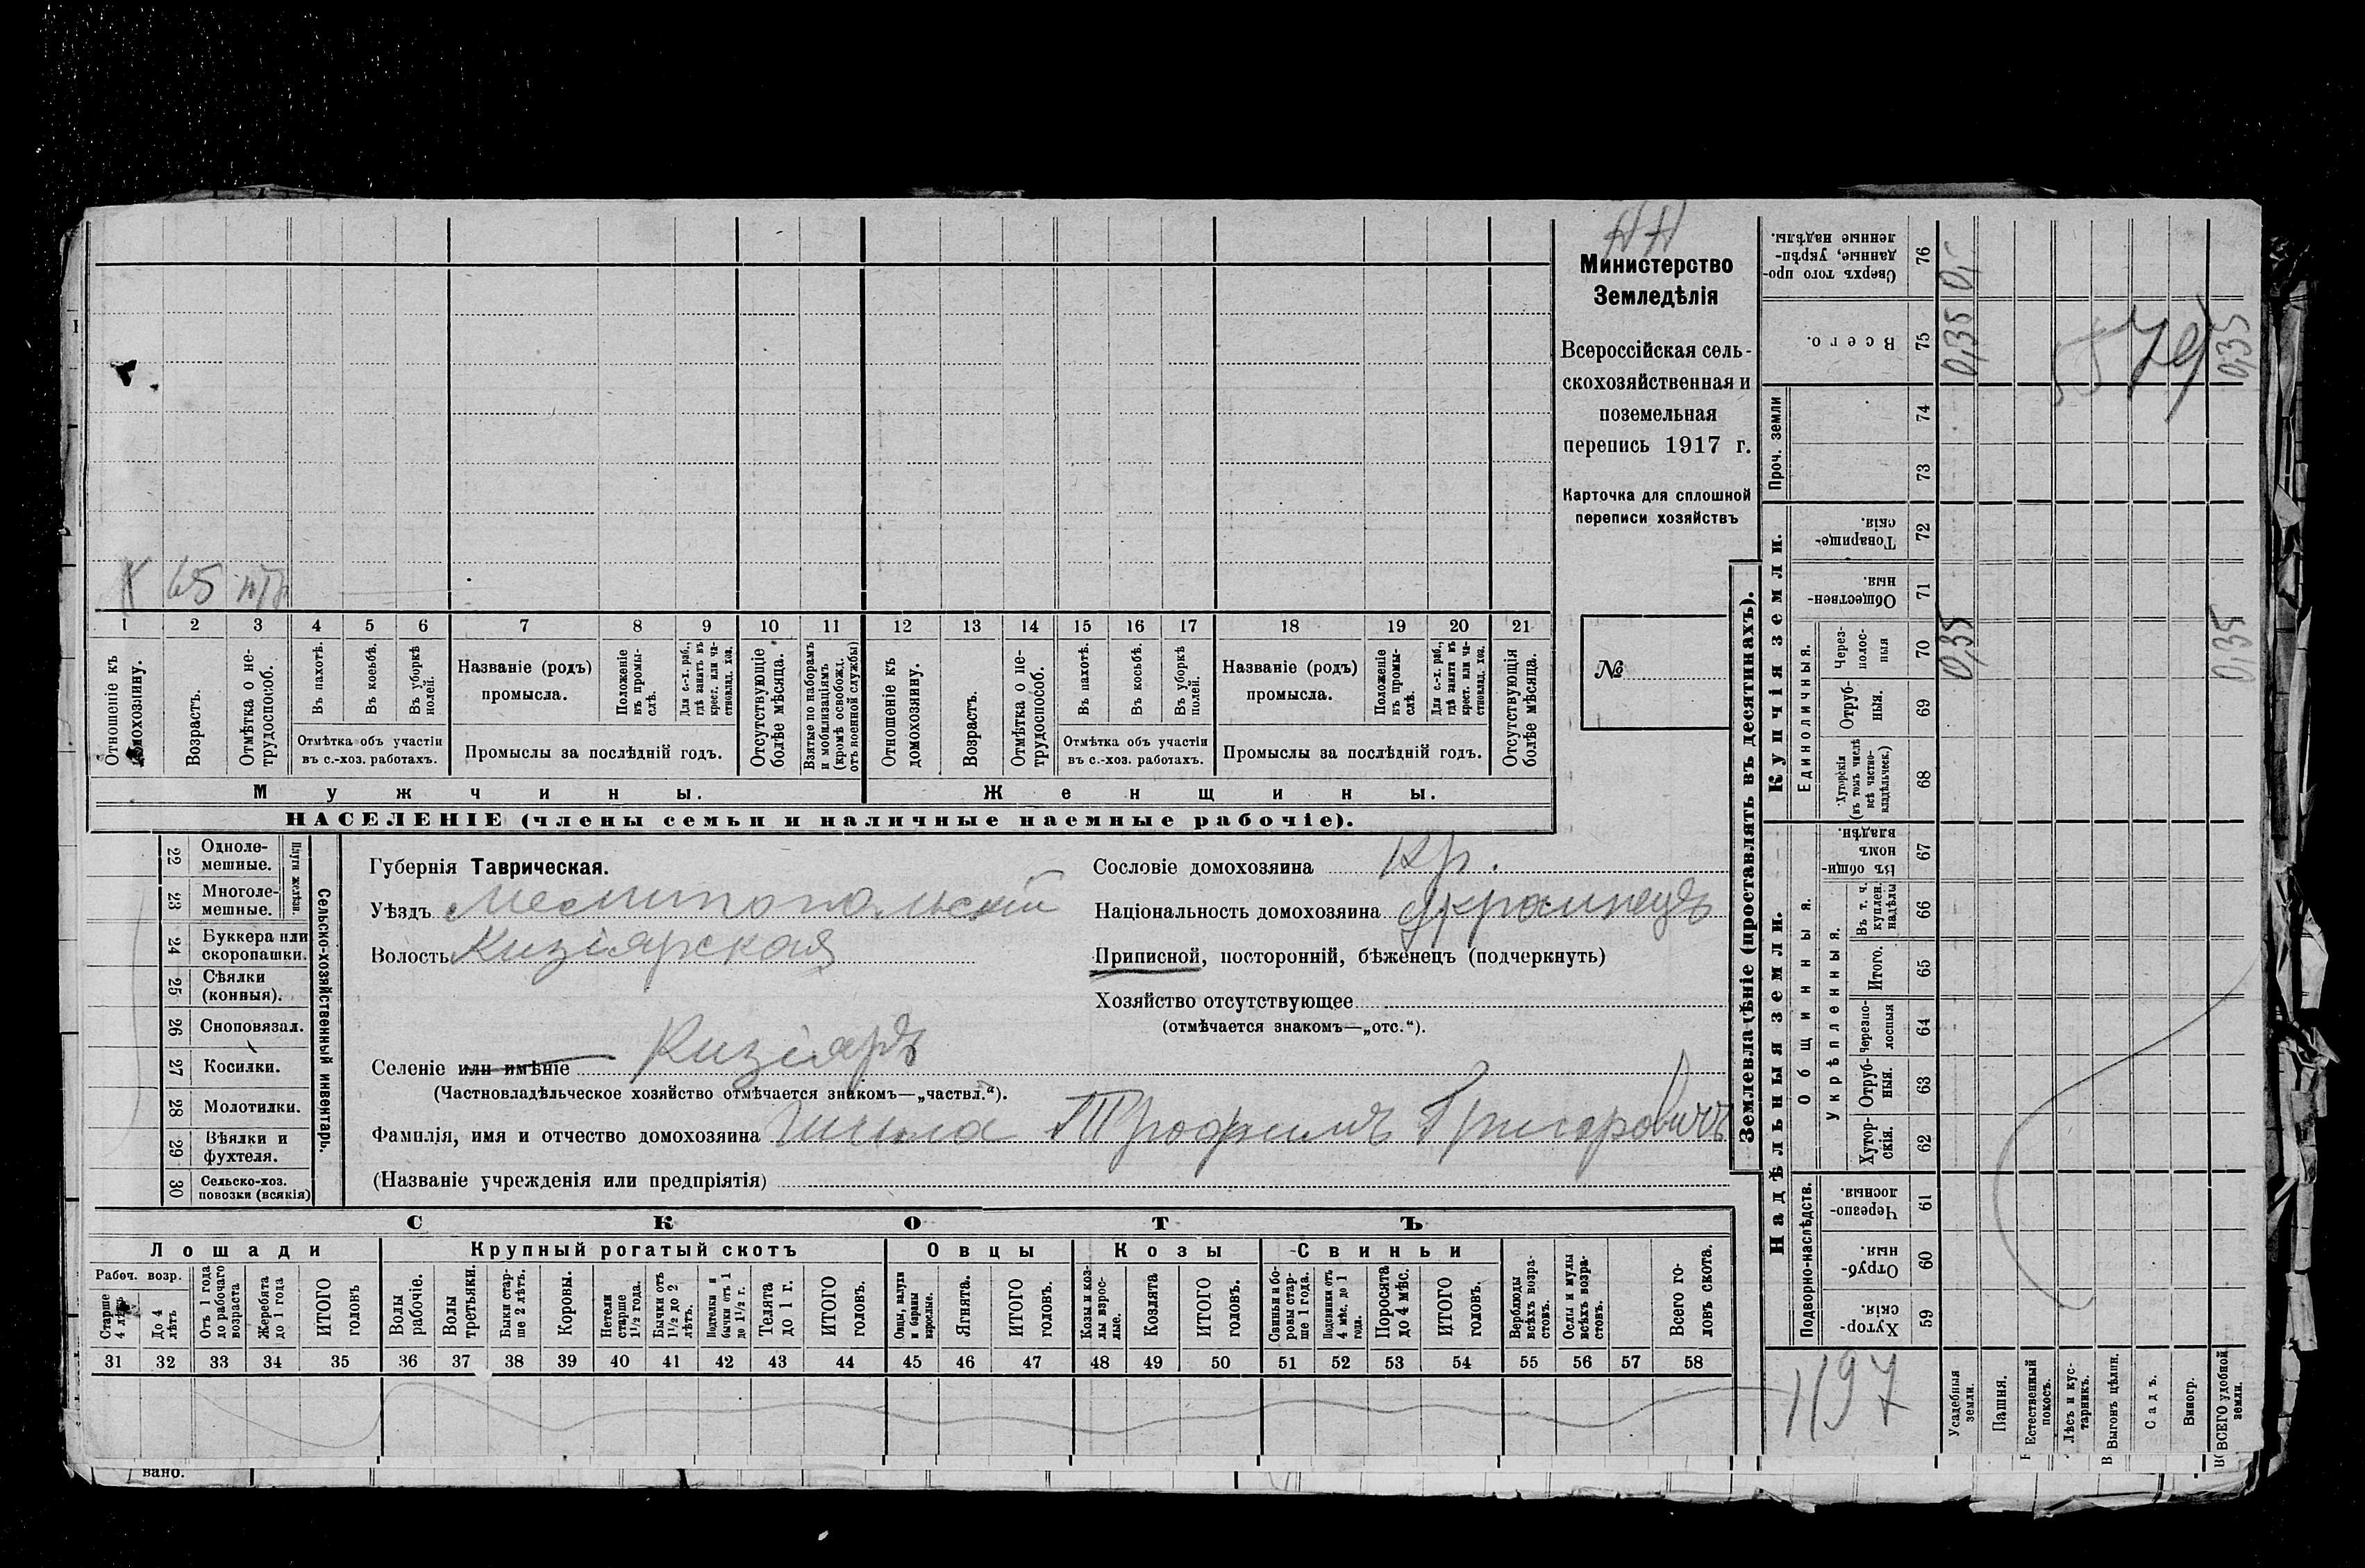 НН
Министерство
Земледѣлія
Всероссійская сель-
скохозяйственная и
поземельная
перепись 1917 г.
Карточка для сплошной
переписи хозяйствъ
№
X 65
1 2 3 4 5 6 7 8 9 10 11 12 13 14 15 16 17 18 19 20 21
Отношеніе къ домохозяину.
Возрастъ.
Отмѣтка о не-трудоспособ.
Въ пахотѣ.
Въ косьбѣ.
Въ уборкѣ полей.
Отмѣтка объ участіи
въ с.-хоз. работахъ.
Названіе (родъ)
промысла.
Положеніе въ промы-слѣ.
Для с.-х. раб., гдѣ занятъ въ крест. или ча-стновлад. хоз.
Промыслы за послѣдній годъ.
Отсутствующіе болѣе мѣсяца.
Взятые по наборамъ и мобилизаціямъ (кромѣ освобожд. отъ военной службы)
Отношеніе къ домохозяину.
Возрастъ.
Отмѣтка о не-трудоспособ.
Въ пахотѣ.
Въ косьбѣ.
Въ уборкѣ полей.
Отмѣтка объ участіи
въ с.-хоз. работахъ.
Названіе (родъ)
промысла.
Положеніе въ промы-слѣ.
Для с.-х. раб., гдѣ занята въ крест. или ча-стновлад. хоз.
Промыслы за послѣдній годъ.
Отсутствующія болѣе мѣсяца.
Мужчины. Женщины.
НАСЕЛЕНІЕ (члены семьи и наличные наемные рабочіе).
22 Одноле-мешные.
23 Многоле-мешные.
Плуги желѣзн.
24 Буккера или скоропашки.
25 Сѣялки (конныя).
26 Сноповязал.
27 Косилки.
28 Молотилки.
29 Вѣялки и фухтеля.
30 Сельско-хоз. повозки (всякія)
Сельско-хозяйственный инвентарь.
Губернія Таврическая.
Уѣздъ Мелитопольскій
Волость Кизіярская
Селеніе или имѣніе Кизіяръ
(Частновладѣльческое хозяйство отмѣчается знакомъ—„частвл.“).
Фамилія, имя и отчество домохозяина Трофимъ Григоровичъ
(Названіе учрежденія или предпріятія)
Сословіе домохозяина Кр.
Національность домохозяина Украинецъ
Приписной, посторонній, бѣженецъ (подчеркнуть)
Хозяйство отсутствующее
(отмѣчается знакомъ—„отс.“).
СКОТЪ
Лошади Крупный рогатый скотъ Овцы Козы Свиньи
Рабоч. возр.
Старше 4 лѣтъ
До 4 лѣтъ
Отъ 1 года до рабочаго возраста
Жеребята до 1 года
ИТОГО головъ
Волы рабочіе.
Волы третьяки.
Быки стар-ше 2 лѣтъ.
Коровы.
Нетели старше 1½ года.
Бычки отъ 1½ до 2 лѣтъ.
Подтелки и бычки отъ 1 до 1½ г.
Телята до 1 г.
ИТОГО головъ.
Овцы, валухи и бараны взрослые.
Ягнята.
ИТОГО головъ.
Козы и коз-лы взрос-лые.
Козлята
ИТОГО головъ.
Свиньи и бо-ровы стар-ше 1 года.
Подсвинки отъ 4 мѣс. до 1 года.
Поросята до 4 мѣс.
ИТОГО головъ.
Верблюды всѣхъ возра-стовъ.
Ослы и мулы всѣхъ возра-стовъ.
Всего го-ловъ скота.
31 32 33 34 35 36 37 38 39 40 41 42 43 44 45 46 47 48 49 50 51 52 53 54 55 56 57 58
Землевладѣніе (проставлять въ десятинахъ).
Надѣльныя земли. Купчія земли. Проч. земли
Подворно-наслѣдств.
Общинныя.
Укрѣпленныя.
Единоличныя.
Сверхъ того про-данные, укрѣп-ленные надѣлы. 76
Всего. 75 0,35
74
73
Товарище-скія. 72
Обществен-ныя. 71
Через-полос-ныя 70 0,35
Отруб-ныя. 69
Хуторскія (въ томъ числѣ всѣ частно-владѣльческ.) 68
Въ общи-номъ владѣн. 67
Въ т. ч. куплен. надѣлы 66
Итого. 65
Черезпо-лосныя 64
Отруб-ныя. 63
Хутор-скія. 62
Черезпо-лосныя. 61
Отруб-ныя. 60
Хутор-скія. 59
0,35
0,35
1197
Усадебныя земли.
Пашня.
Естественный покосъ.
Лѣсъ и кус-тарникъ.
Выгонъ цѣлин.
Садъ.
Виногр.
ВСЕГО удобной земли.
вано.